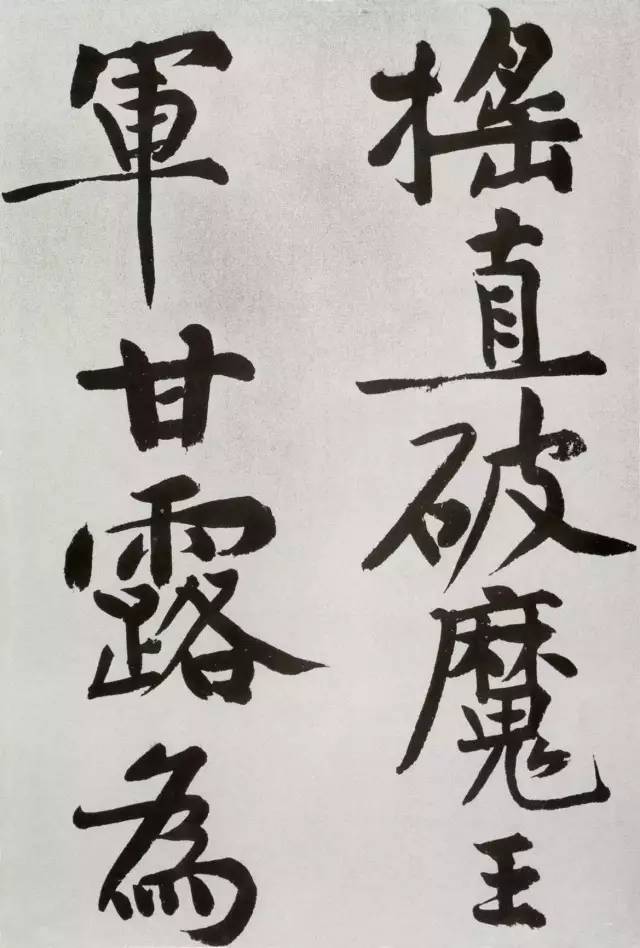 搖直破魔王
軍甘露為